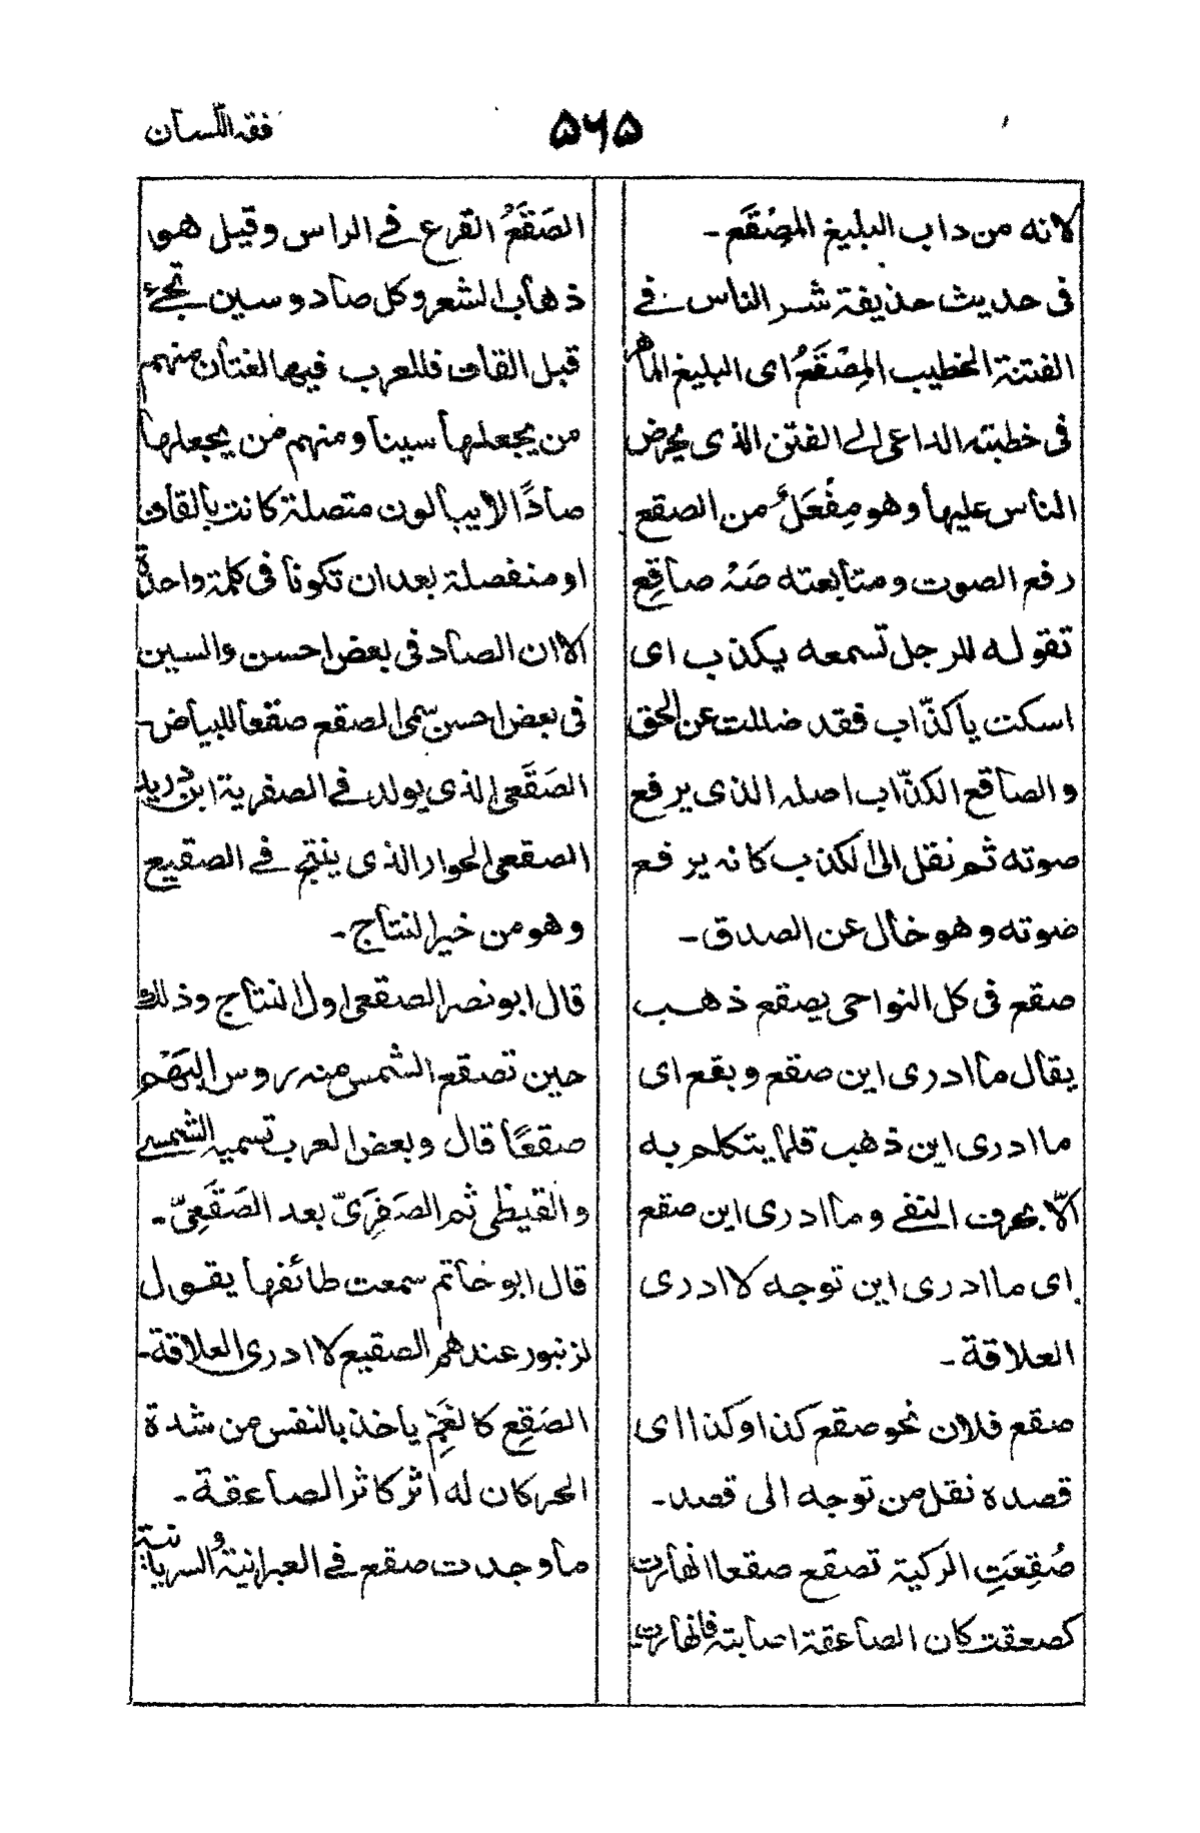 فقه اللسان
۵۶۵
لانه من داب البليغ المصْقَع-
فى حديث حذيفة شر الناس فے
الفتنة الخطيب المِصْقَعُ اى البليغ الماهر
فى خطبته الداعى الے الفتن الذى يحرض
الناس عليها وهو مِفْعَلٌ من الصقع
رفع الصوت ومتابعته صَهْ صاقِع
تقوله للرجل تسمعه يكذب اى
اسكت ياكذّاب فقد ضللت عن الحق
والصاقع الكذّاب اصله الذى يرفع
صوته ثم نقل الى الكذب كانه يرفع
صوته وهو خال عن الصدق-
صقع فى كل النواحى يصقع ذهب
يقال ما ادرى اين صقع وبقع اى
ما ادرى اين ذهب قلما يتكلم به
الّا بحرف النفے وما ادرى اين صقع
اى ما ادرى اين توجه لا ادرى
العلاقة-
صقع فلان نحو صقع كذا وكذا اى
قصده نقل من توجه الى قصد-
صُقِعَتِ الركية تصقع صقعا انهارت
كصعقت كان الصاعقة اصابته فانهارت
الصَقَعُ القرع فے الراس وقيل هو
ذهاب الشعر وكل صاد وسين تجئ
قبل القاف فللعرب فيها لغتان منهم
من يجعلها سينا ومنهم من يجعلها
صادًا لا يبالون متصلة كانت بالقاف
او منفصلة بعد ان تكونا فى كلمة واحدة
الا ان الصاد فى بعض احسن والسين
فى بعض احسن سمى الصقع صقعا للبياض-
الصَقَعى الذى يولد فے الصفرية ابن دريد
الصقعى الحوار الذى ينتج فے الصقيع
وهو من خير النتاج-
قال ابو نصر الصقعى اول النتاج وذلك
حين تصقع الشمس منه روس البَهْم
صقعًا قال وبعض العرب تسميه الشمسے
والقيظى ثم الصَفَرَىّ بعد الصَقَعِىّ-
قال ابو حاتم سمعت طائفها يقول
لزنبور عندهم الصقيع لا ادرى العلاقة-
الصَقِع كالغَمِّ ياخذ بالنفس من شدة
الحر كان له اثر كاثر الصاعقة-
ما وجدت صقع فے العبرانية والسريانية